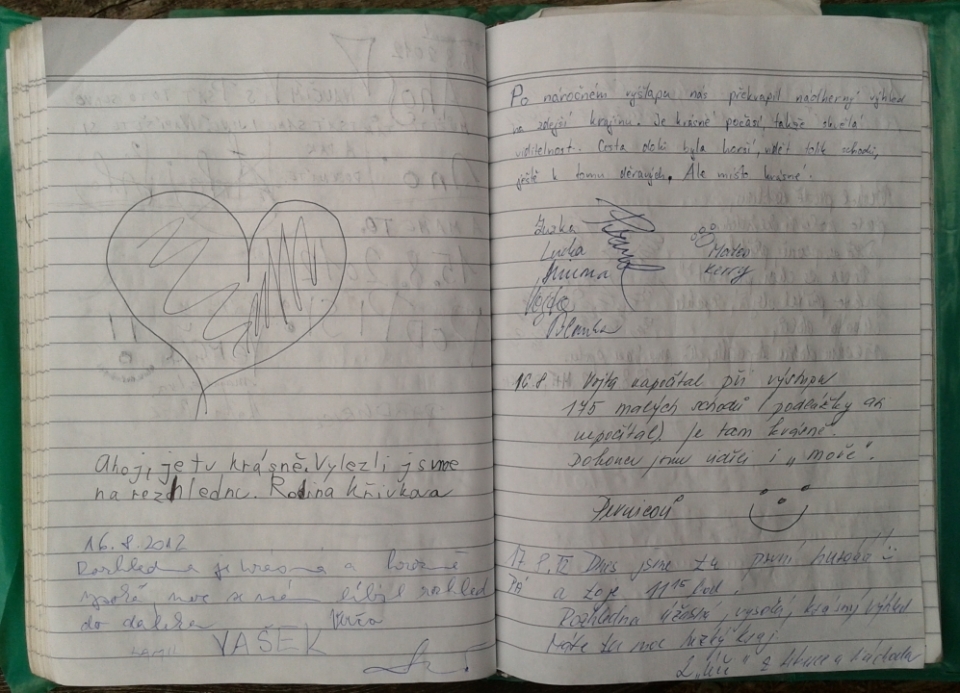 Ahoj, je tu krásně. Vylezli jsme
na rozhlednu. Rodina Křivkova
16.8.2012
Rozhledna je krásná a
moc se nám líbil rozhled
do daleka
VAŠEK
Po náročném výšlapu nás překvapil nádherný výhled
na zdejší krajinu. Je krásné počasí takže skvělá
viditelnost. Cesta dolů byla horší, vidět tolik schodů,
ještě k tomu děravých. Ale místo krásné.
Zuzka
Lucka
Matěj
Kerry
16.8 Vojta napočítal při výstupu
175 malých schodů (podlážky ani
nepočítal). Je tam krásně.
Dokonce jsme viděli i „moře“.
17.8.12 Dnes jsme tu první hurááá!
PÁ a to je 11 15 hod.
Rozhledna úžasná, vysoká, krásný výhled
Máte tu moc hezký kraj.